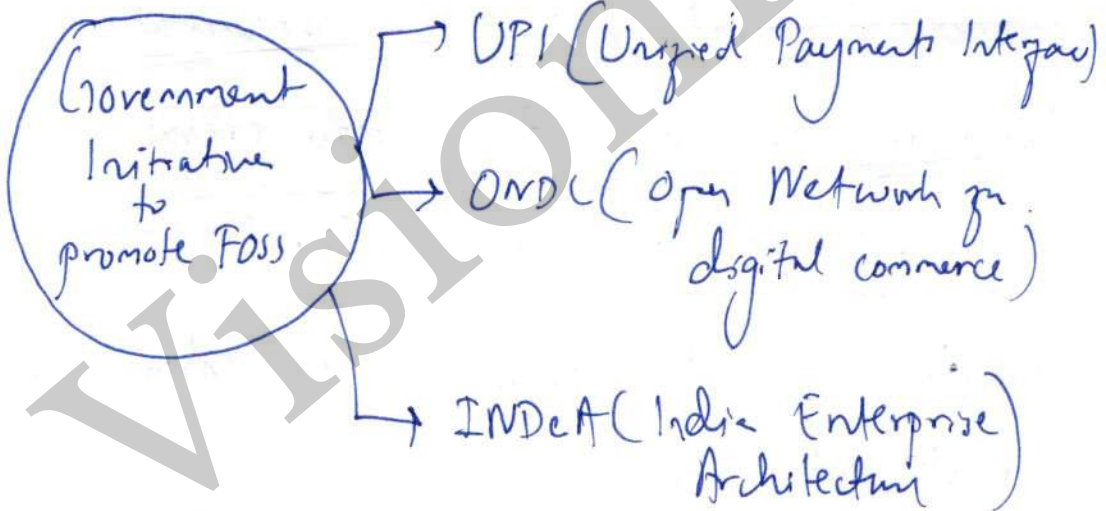 Government
Initiative
to
promote FOSS
UPI (Unified Payments Interface)
ONDC (Open Network for
digital commerce)
INDeA (India Enterprise
Architecture)
Vision